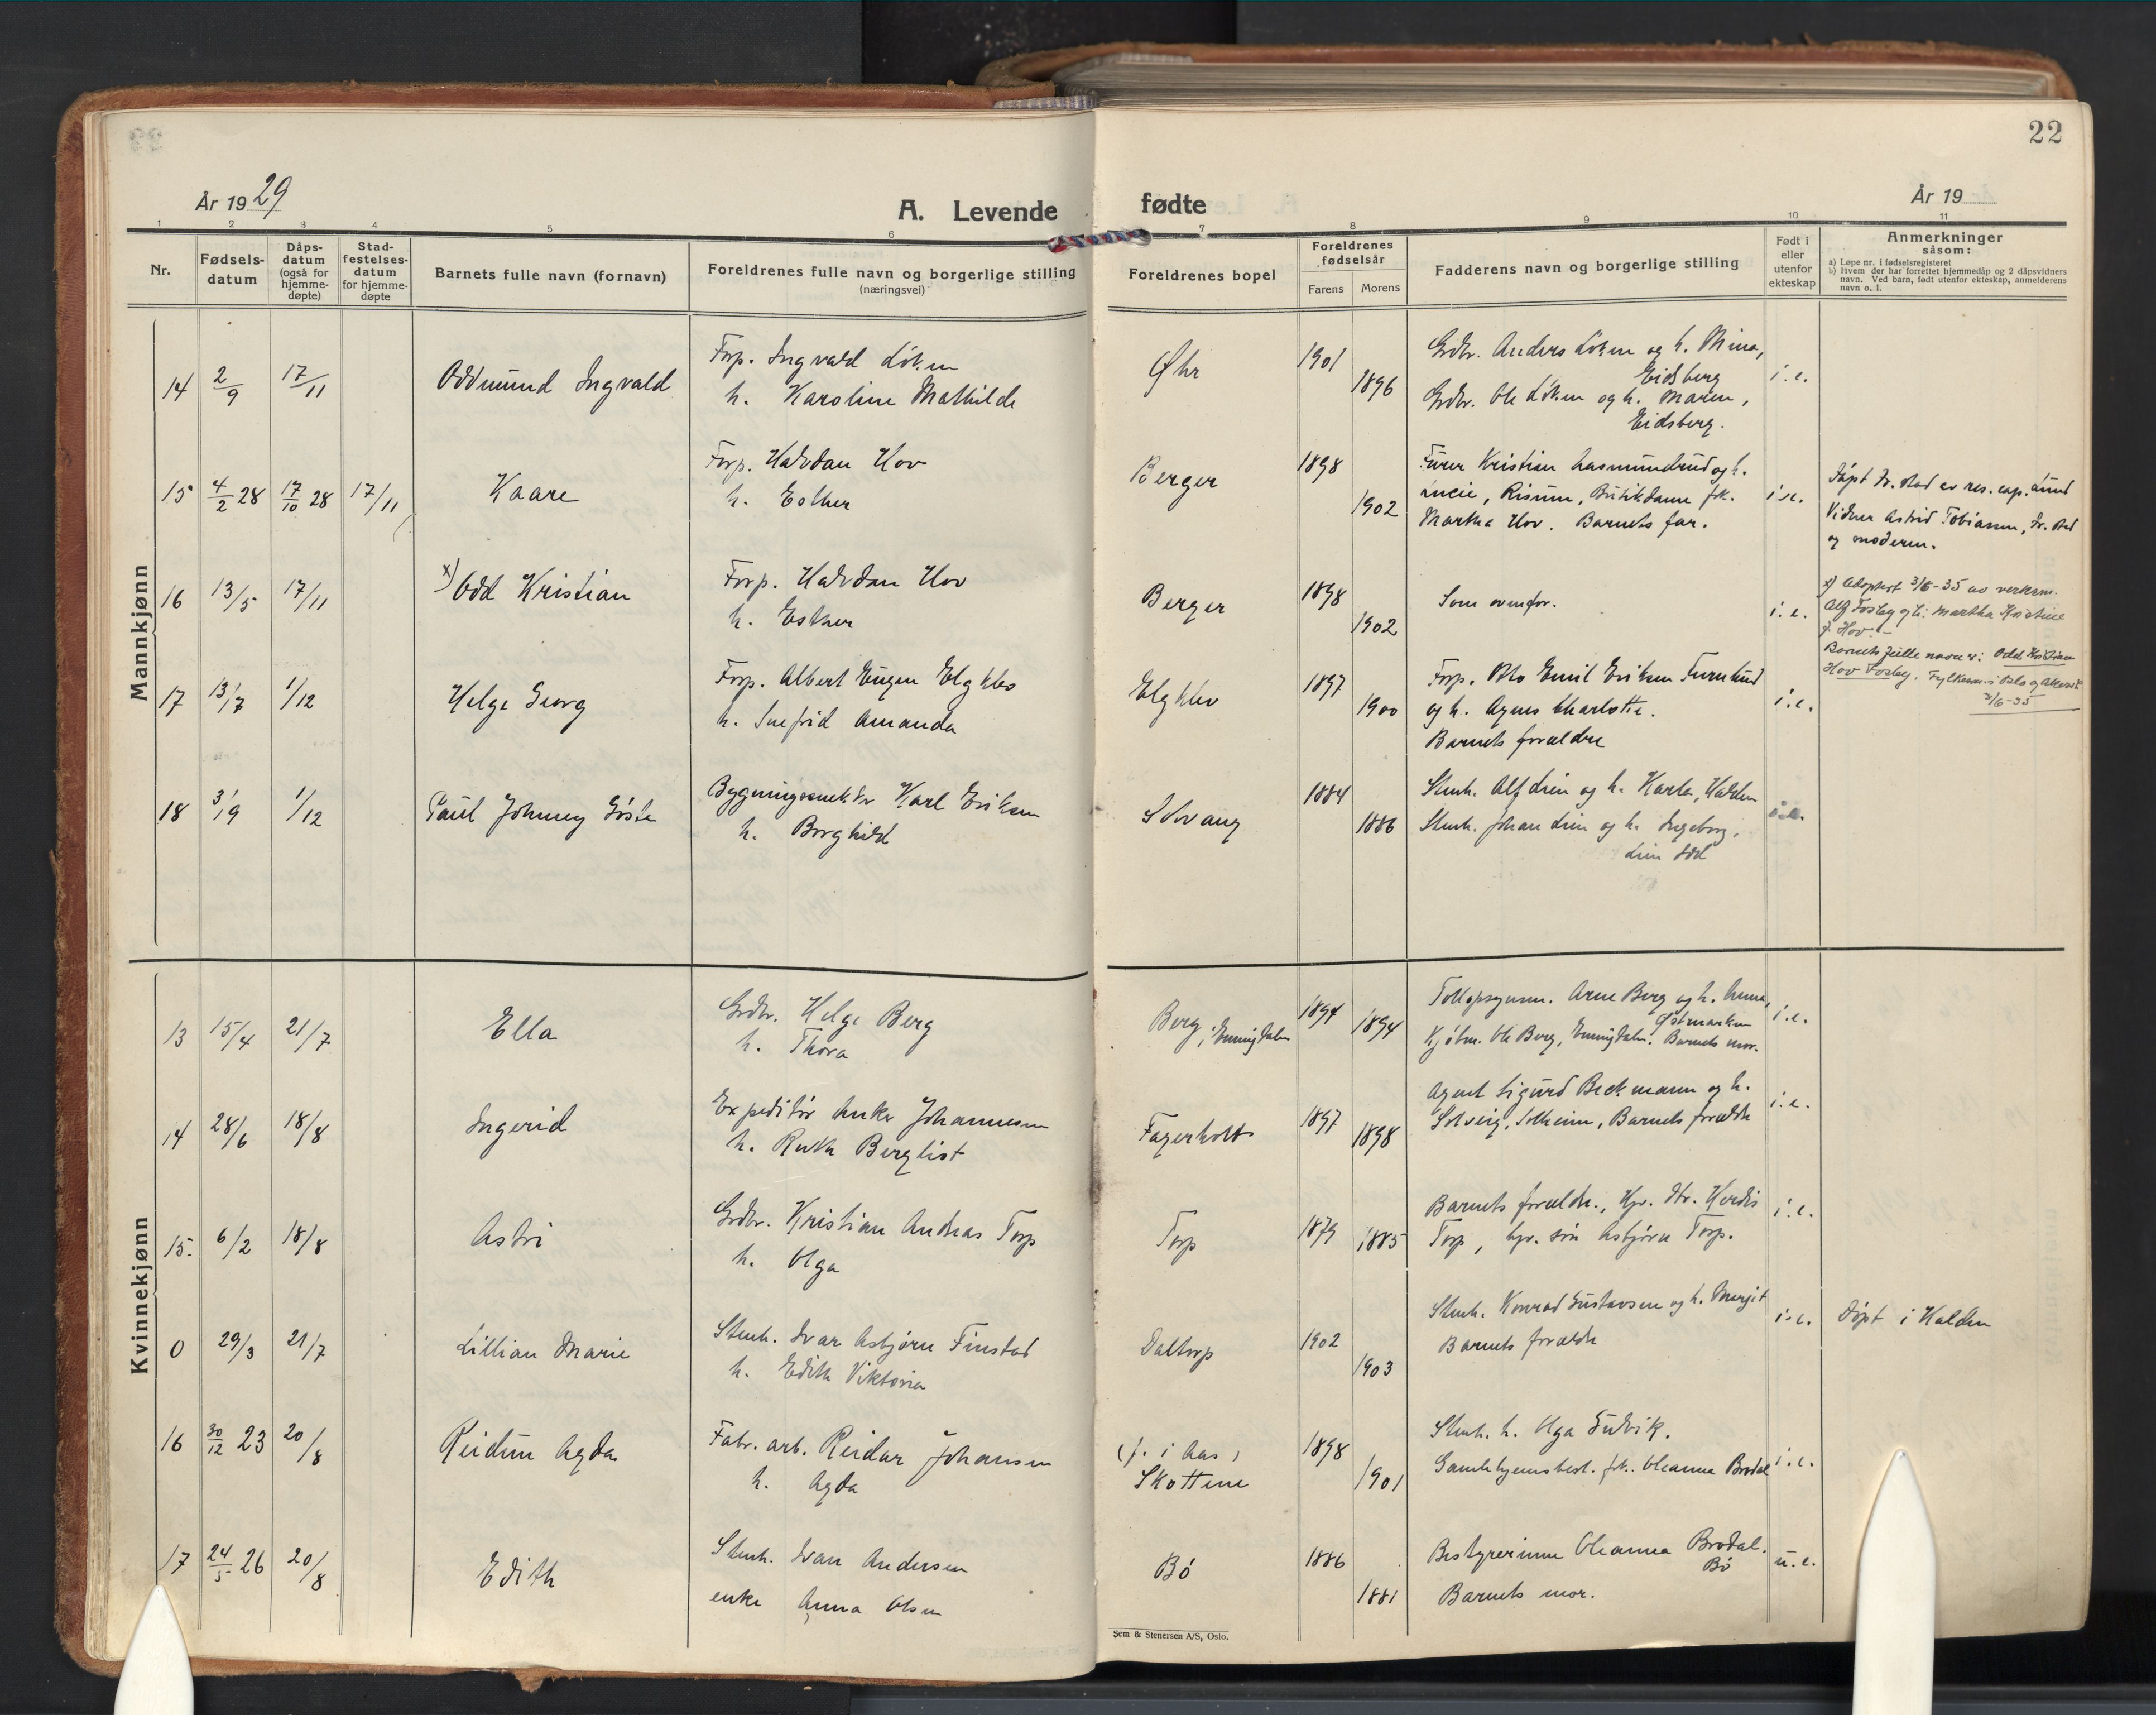 22
År 1929
A. Levende
fødte
År 19
1 2 3 4 5 6 7 8 9 10 11
Nr.
Fødsels-
datum
Dåps-
datum
(også for
hjemme-
døpte)
Stad-
festelses-
datum
for hjemme-
døpte
Barnets fulle navn (fornavn)
Foreldrenes fulle navn og borgerlige stilling
(næringsvei)
Foreldrenes bopel
Foreldrenes
fødselsår
Farens Morens
Fadderens navn og borgerlige stilling
Født i
eller
utenfor
ekteskap
Anmerkninger
såsom:
a) Løpe nr. i fødselsregisteret
b) Hvem der har forrettet hjemmedåp og 2 dåpsvidners
navn. Ved barn, født utenfor ekteskap, anmelderens
navn o. l.
Mannkjønn
14 2/9 17/11 Oddmund Ingvald
Forp. Ingvald Løken
h. Karoline Mathilde
Øhr 1901 1896
Grdbr. Anders Løken og h. Mina,
Eidsberg
Grdbr. Ole Løken og h. Maren,
Eidsberg.
i.e.
15 4/2 28 17/10 28 17/11 Kaare
Forp. Halvdan Hov
h. Esther
Berger 1898 1902
Furer Kristian Aasmundrud og h.
Lucie, Risum, Butikdame frk.
Martha Hov. Barnets far.
i.e.
Døpt Fr.stad av res. cap. Lund
Vidner Astrid Tobiassen, Fr.stad
og moderen.
16 13/5 17/11 x) Odd Kristian
Forp. Halvdan Hov
h. Esther
Berger 1898 1902
Som ovenfor.
i.e.
x) Adoptert 3/6-35 av verksm.
Alf Fosby og h. Martha Kristine
f. Hov.-
Barnets fulle navn er: Odd Kristian
Hov Fosby. Fylkesm. i Oslo og Akershus
3/6-35
17 13/7 1/12 Helge Georg
Forp. Albert Eugen Elgklev
h. Snefrid Amanda
Elgklev 1897 1900
Forp. Oto Emil Eriksen Furulund
og h. Agnes Charlotte.
Barnets forældre
i.e.
18 3/9 1/12 Paul Johnny Gøste
Bygningssnekker Karl Eriksen
h. Borghild
Solvang 1884 1886
Stenh. Alf Lien og h. Karla, Halden
Stenh. Johan Lien og h. Ingeborg,
Lien Idd
i.e.
Kvinnekjønn
13 15/4 21/7 Ella
Grdbr. Helge Berg
h. Thora
Berg, Enningdalen 1894 1894
Tollopsynsm. Arne Berg og h. Anna,
Østmarken
Kjøbm. Ole Berg, Enningdalen. Barnets mor.
i.e.
14 28/6 18/8 Ingerid
Expeditør Anker Johannesen
h. Ruth Bergliot
Fagerholt 1897 1898
Agent Sigurd Beckmann og h.
Solveig, Solheim, Barnets forældre
i.e.
15. 6/2 18/8 Astri
Grdbr. Kristian Andreas Torp
h. Olga
Torp 1879 1885
Barnets forældre, Hjv. dtr. Herdis
Torp, hjv. søn Asbjørn Torp.
i.e.
0 29/3 21/7 Lillian Marie
Stenh. Ivar Asbjørn Finstad
h. Edith Viktoria
Daltorp 1902 1903
Stenh. Konrad Gustavsen og h. Margit
Barnets forældre
i.e.
Døpt i Halden
16 30/12 23 20/8 Reidun Agda
Fabr. arb. Reidar Johansen
h. Agda
(f. i Aas)
Skottene 1898 1901
Stenh. h. Olga Gudvik.
Gamlehjemsbest. frk. Oleanna Brodal
i.e.
17 24/5 26 20/8 Edith
Stenh. Ivan Andersen
enke Anna Olsen
Bø 1886 1881
Bestyrerinne Oleanna Brodal.
Bø
Barnets mor.
u.e.
Sem & Stenersen A/S, Oslo.